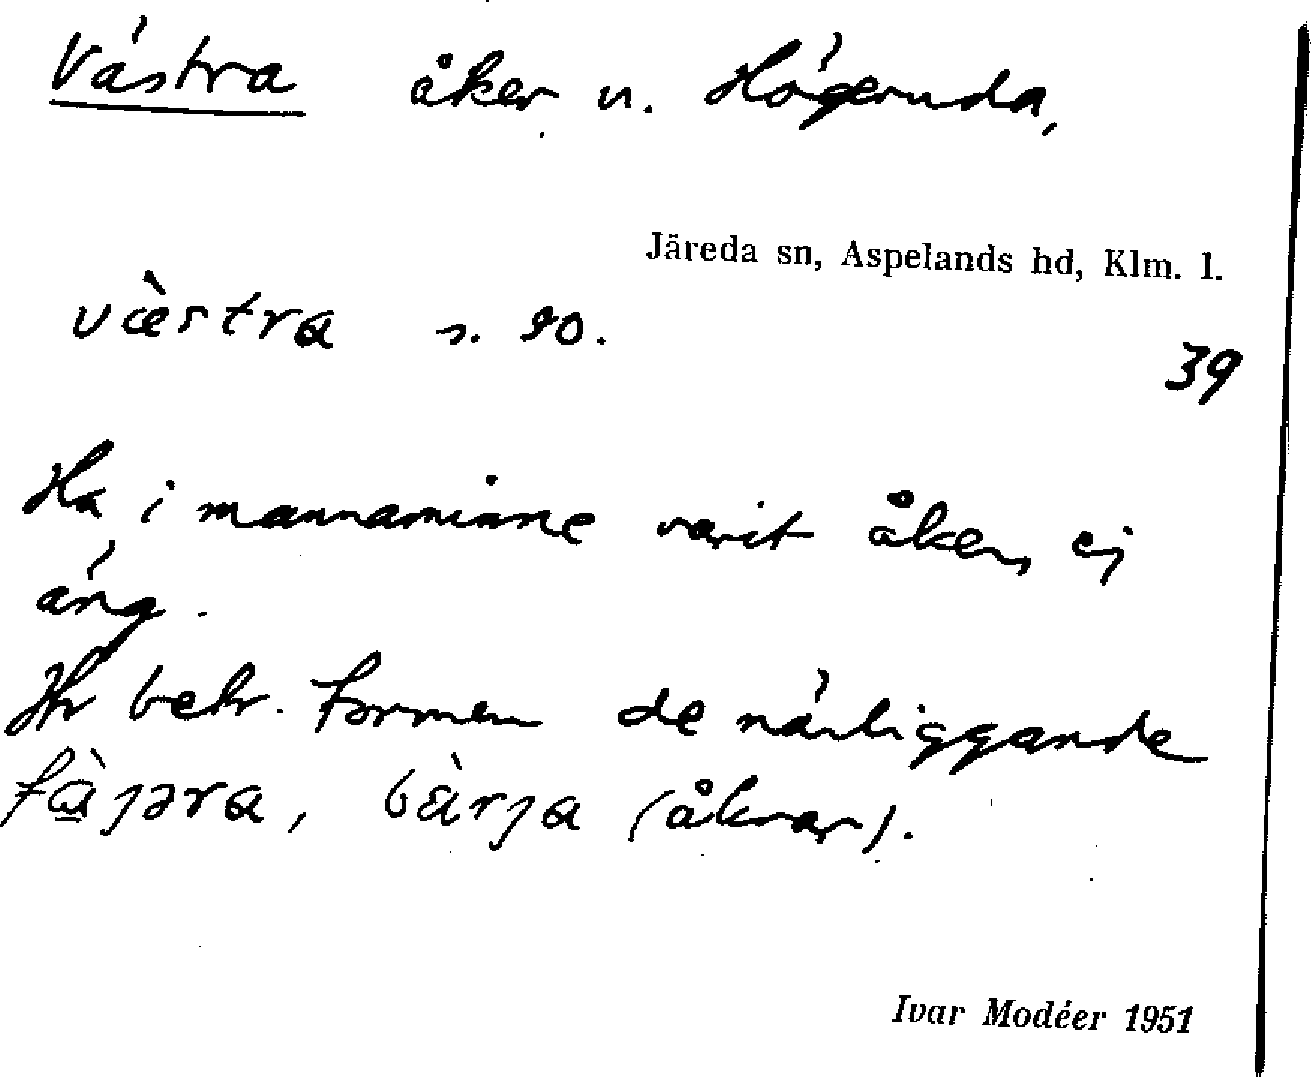 Västra åker u. Högeruda,
Järeda sn, Aspelands hd, Klm. l.
vὰstra s. 90.
39
Ha i mannaminne varit åker, ej
äng.
Jfr betr. formen de närliggande
(åkrar).
Ivar Modéer 1951